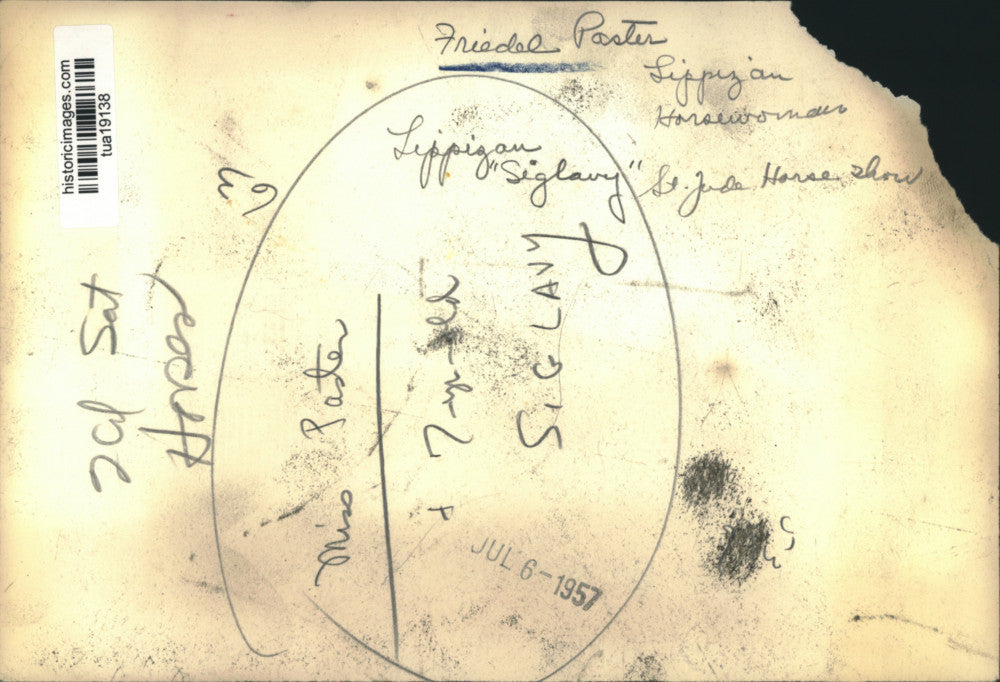 Friedel Paster
Lippizan
Horsewoman
St. Jude Horse Show
Lippizan
"Siglavy"
historicimages.com
tua19138
2 Col Sat
Horses
Miss Paster
+ 7-yr-old
SIGLAVY
JUL 6-1957